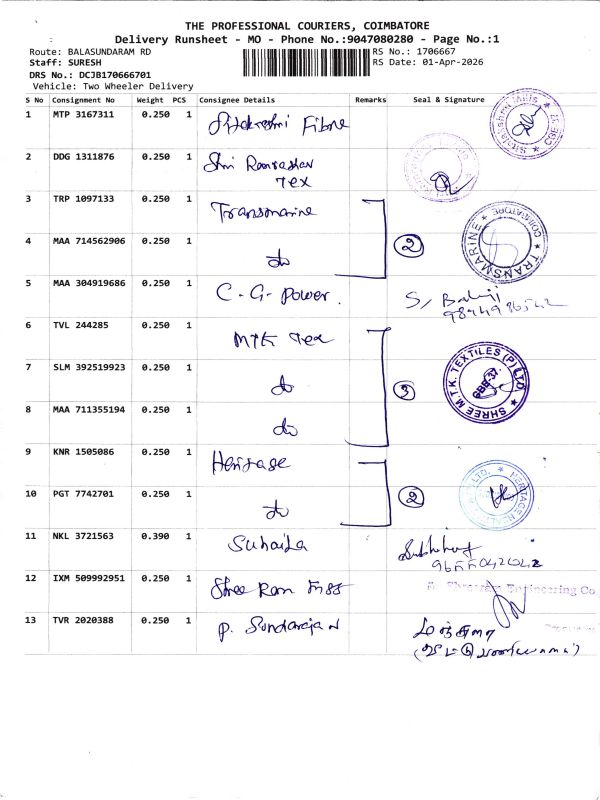 THE PROFESSIONAL COURIERS, COIMBATORE
Delivery Runsheet - MO - Phone No.:9047080280 - Page No.:1
Route: BALASUNDARAM RD
RS No.: 1706667
Staff: SURESH
RS Date: 01-Apr-2026
DRS No.: DCJB170666701
Vehicle: Two Wheeler Delivery
S No Consignment No Weight PCS Consignee Details Remarks Seal & Signature
1 MTP 3167311 0.250 1 Fibre
2 DDG 1311876 0.250 1 Shri
Tex
3 TRP 1097133 0.250 1 Transmarine
TRANSMARINE * COIMBATORE *
4 MAA 714562906 0.250 1 do
2
5 MAA 304919686 0.250 1 C.G. Power.
6 TVL 244285 0.250 1 MTK Tex
7 SLM 392519923 0.250 1 do
3
SHREE M.T.K. TEXTILES (P) LTD. *
8 MAA 711355194 0.250 1 do
9 KNR 1505086 0.250 1 Heritage
10 PGT 7742701 0.250 1 do
2
11 NKL 3721563 0.390 1 Suhaila
12 IXM 509992951 0.250 1 Shree Ram
Engineering Co
13 TVR 2020388 0.250 1 P. Sundarajan